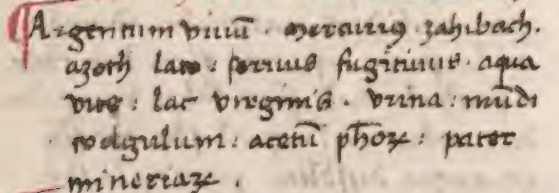 Argentum viuū · mercurius · zahibach.
azoth lato : seruus fugitiuus · aqua
vite : lac virginis · vrina : mūdi
codgulum : acetū ph̄oꝝ : pater
mineriaꝝ .